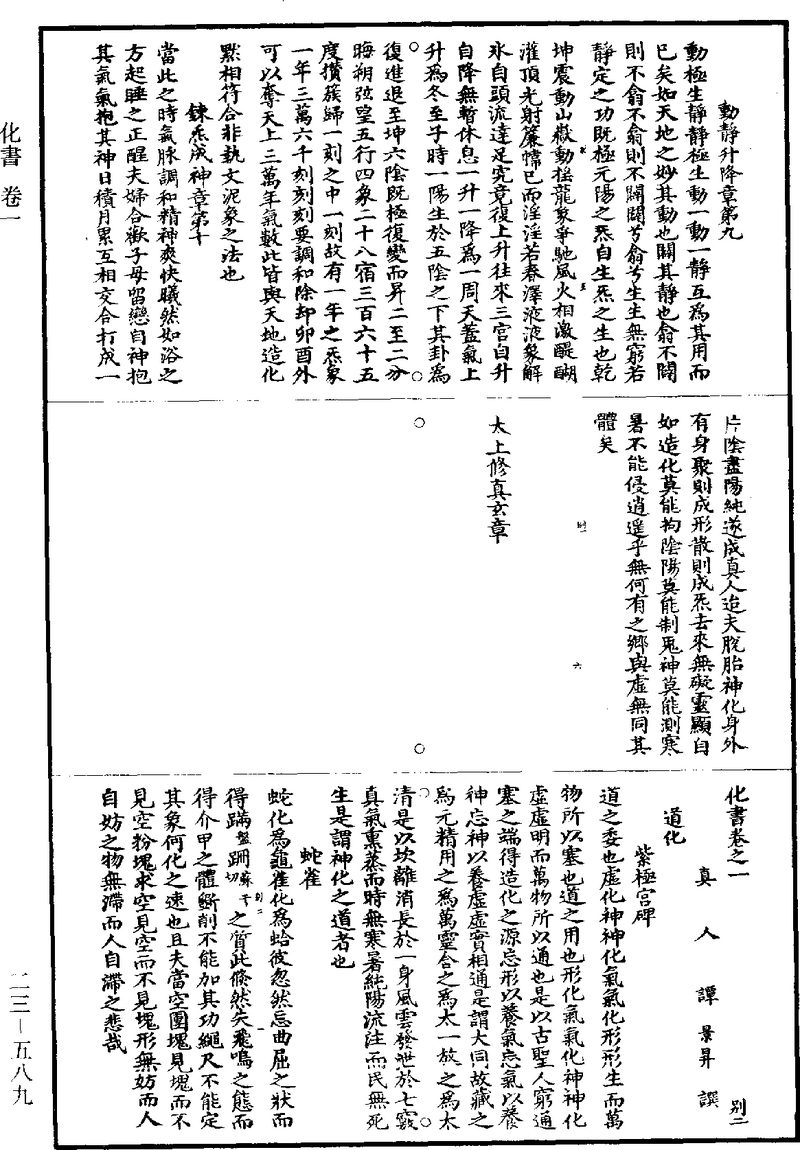 化書 卷一
二三—五八九
動靜升降章第九
動極生靜靜極生動一動一靜互為其用而
已矣如天地之妙其動也闢其靜也翕不闢
則不翕不翕則不闢闢兮翕兮生生無窮若
靜定之功既極元陽之炁自生炁之生也乾
坤震動山嶽動搖龍象爭馳風火相激醍醐
灌頂光射簾幃已而淫淫若春澤液液象解
氷自頭流達足究竟復上升往來三宮自升
自降無暫休息一升一降為一周天蓋氣上
升為冬至子時一陽生於五陰之下其卦為
復進退至坤六陰既極復變而昇二至二分
晦朔弦望五行四象二十八宿三百六十五
度攢蔟歸一刻之中一刻故有一年之炁象
一年三萬六千刻刻刻要調和除却卯酉外
可以奪天上三萬年氣數此皆與天地造化
黙相符合非執文泥象之法也
鍊炁成神章第十
當此之時氣脉調和精神爽快曦然如浴之
方起睡之正醒夫婦合歡子母留戀自神抱
其氣氣抱其神日積月累互相交合打成一
片陰盡陽純遂成真人迨夫脫胎神化身外
有身聚則成形散則成炁去來無礙靈顯自
如造化莫能拘陰陽莫能制鬼神莫能測寒
暑不能侵逍遥乎無何有之鄉與虛無同其
體矣
太上修真玄章
化書卷之一
別二
真人譚景昇譔
道化
紫極宮碑
道之委也虛化神神化氣氣化形形生而萬
物所以塞也道之用也形化氣氣化神神化
虛虛明而萬物所以通也是以古聖人窮通
塞之端得造化之源忘形以養氣忘氣以養
神忘神以養虛虛實相通是謂大同故藏之
為元精用之為萬靈合之為太一放之為太
清是以坎離消長於一身風雲發泄於七竅
真氣熏蒸而時無寒暑純陽流注而民無死
生是謂神化之道者也
蛇雀
蛇化為龜雀化為蛤彼忽然忘曲屈之狀而
得蹣盤跚蘇干切之質此倏然失飛鳴之態而
得介甲之體斲削不能加其功繩尺不能定
其象何化之速也且夫當空團塊見塊而不
見空粉塊求空見空而不見塊形無妨而人
自妨之物無滯而人自滯之悲哉